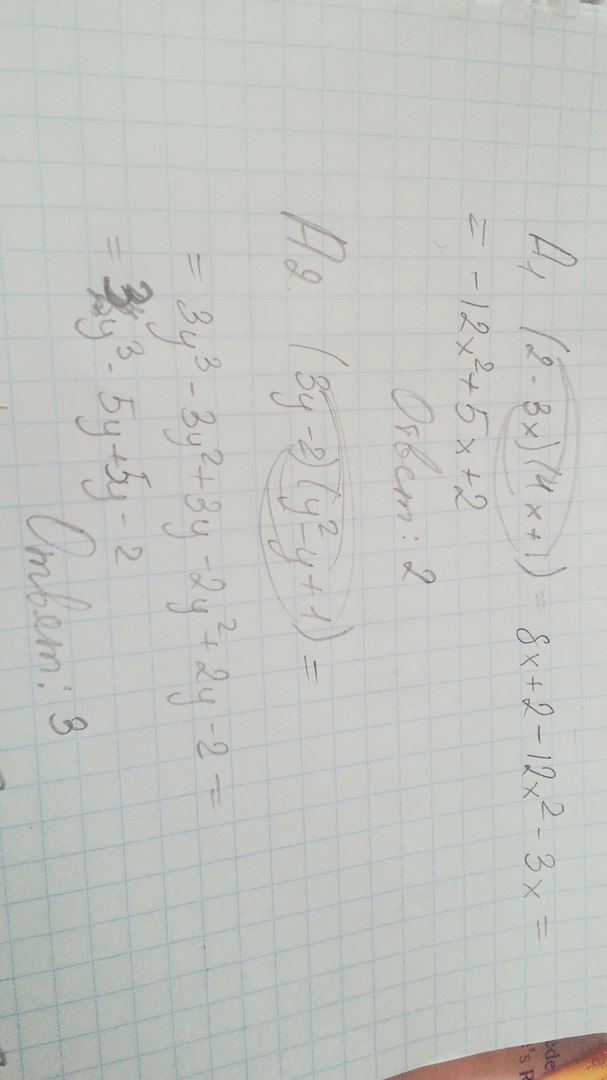 А1 (2-3x)(4x+1) = 8x+2-12x²-3x =
= -12x²+5x+2
Ответ: 2
А2. (3y-2)(y²-y+1) =
= 3y³-3y²+3y-2y²+2y-2 =
= 3y³-5y+5y-2
Ответ: 3